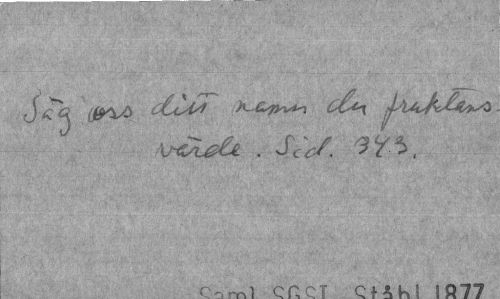 Säg oss ditt namn du fruktans
värde. Sid. 343.
Saml. SGSI. Ståhl 1877